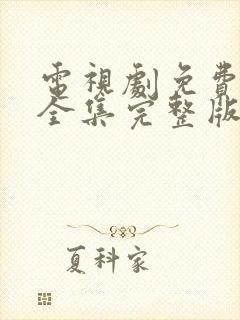 電視劇免費
全集完整版
夏科家